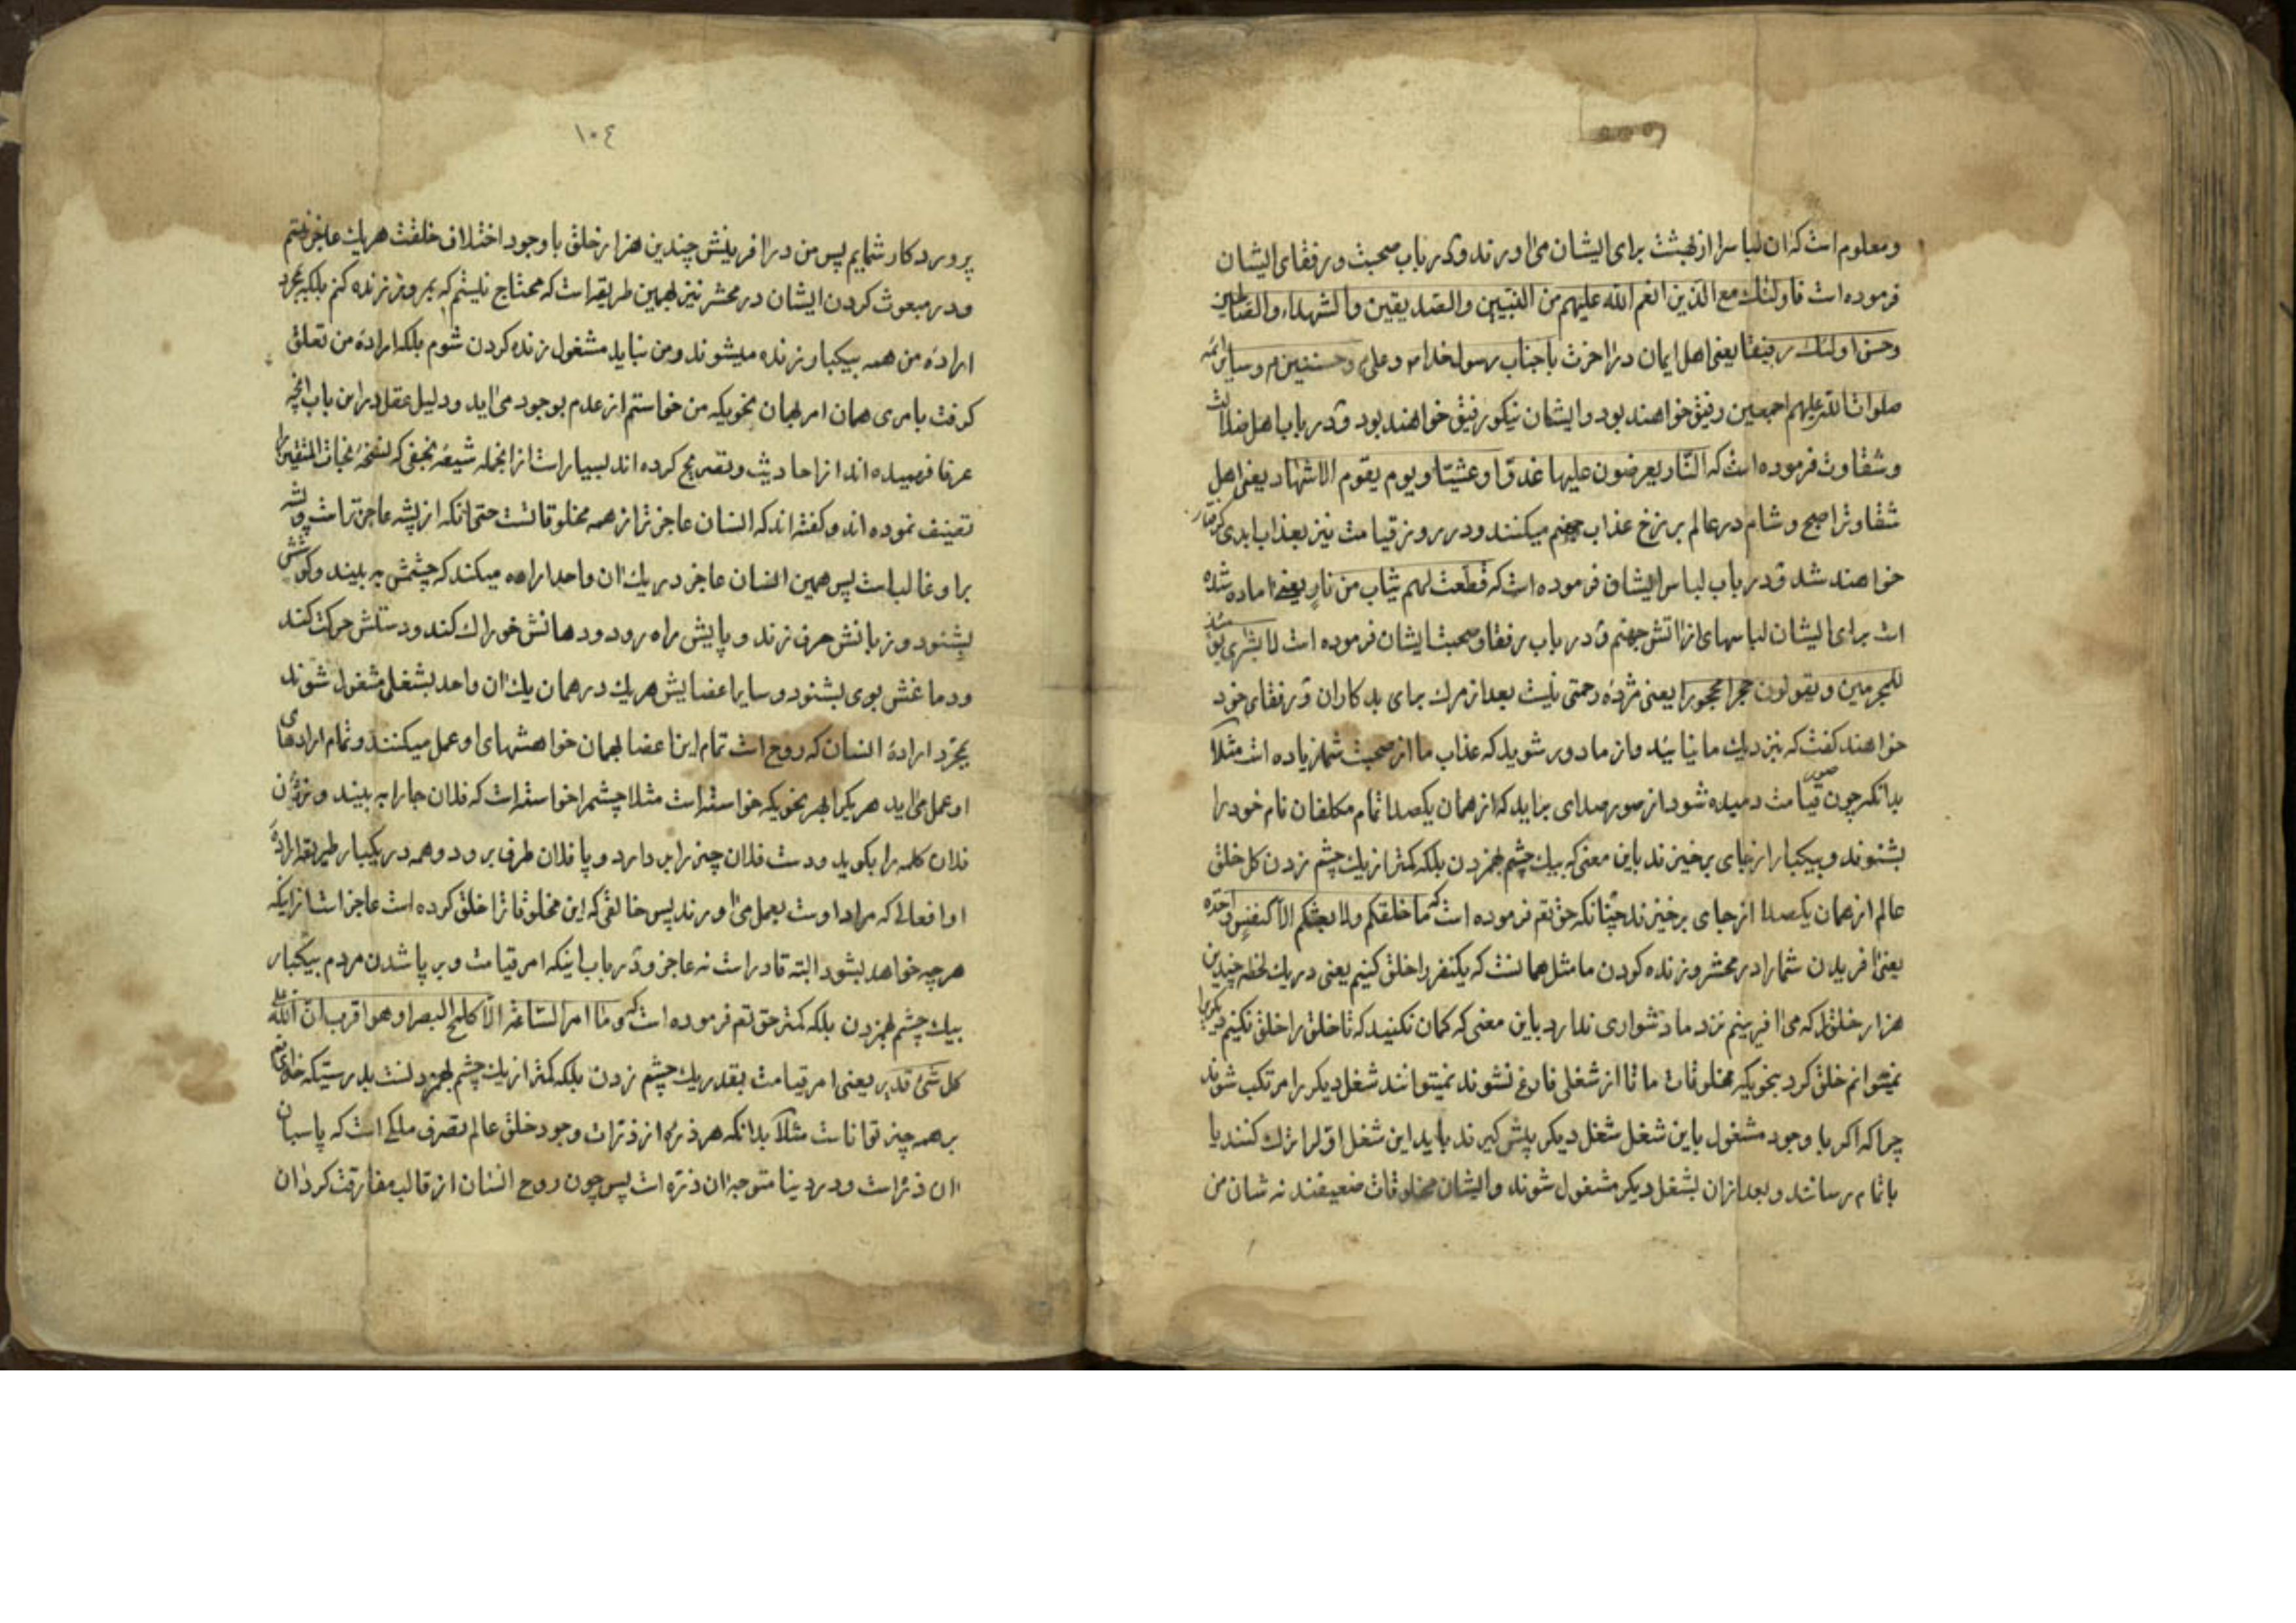 ومعلوم است که ان لباس را از بهشت برای ایشان می اورند و در باب صحبت و رفقای ایشان
فرموده است فاولئك مع الذین انعم الله علیهم من النبیین والصدیقین والشهداء والصالحین
وحسن اولئك رفیقا یعنی اهل ایمان در اخرت با جناب رسول خدا ص و علی و حسنین م و سایر ائمه
صلوات الله علیهم اجمعین رفیق خواهند بود و ایشان نیکو رفیق خواهند بود و در باب اهل ضلالت
وشقاوت فرموده است که النار یعرضون علیها غدوا وعشیتا ویوم یقوم الاشهاد یعنی اهل
شقاوترا صبح و شام در عالم برزخ عذاب جهنم میکنند و در روز قیامت نیز بعذاب ابدی گرفتار
خواهند شد و در باب لباس ایشان فرموده است که قطعت لهم ثیاب من نار یعنی اماده شده
است برای ایشان لباسهای از اتش جهنم و در باب رفقا و صحبت ایشان فرموده است لا بشری یومئذ
للمجرمین ویقولون حجرا محجورا یعنی مژده رحمتی نیست بعد از مرك برای بدکاران و رفقای خود
خواهند کفت که نزدیك ما نیائید و از ما دور شوید که عذاب ما از صحبت شما زیاده است مثلا
بدانکه چون صور قیامت دمیده شود از صور صدای براید که از همان یکصدا تمام مکلفان نام خود را
بشنوند و بیکبار از جای برخیزند باین معنی که بیك چشم بهمزدن بلکه کمتر از یك چشم زدن کل خلق
عالم از همان یکصدا از جای برخیزند چنانکه حق تعم فرموده است که ما خلقکم ولا بعثکم الا کنفس واحده
یعنی افریدن شما را در محشر و زنده کردن ما مثل همانست که یکنفر را خلق کنیم یعنی در یك لحظه چندین
هزار خلق را که می افرینم نزد ما دشواری ندارد باین معنی که کمان نکنید که تا خلق را خلق نکنیم دیکریرا
نمیتوانم خلق کرد بنحویکه مخلوقات ما تا از شغلی فارغ نشوند نمیتوانند شغل دیکر را مرتکب شوند
چراکه اکر با وجود مشغول باین شغل شغل دیکر پیش کیرند باید این شغل اول را ترك کنند یا
باتمام رسانند و بعد ازان بشغل دیکر مشغول شوند و ایشان مخلوقات ضعیفند نه شان من
١٠٤
پروردکار شمایم پس من در افرینش چندین هزار خلق با وجود اختلاف خلقت هریك عاجز نیستم
و در مبعوث کردن ایشان در محشر نیز بهمین طریقه است که محتاج نیستم که بمرور زنده کنم بلکه بمجرد
اراده من همه بیکبار زنده میشوند و من نباید مشغول زنده کردن شوم بلکه اراده من تعلق
کرفت بامری همان امر بهمان نحویکه من خواستم از عدم بوجود می اید و دلیل عقل در این باب انچه
عرفا فهمیده اند از احادیث و تصریح کرده اند بسیار است از انجمله شیعه نجفی که نسخه نجات المتقین را
تصنیف نموده اند و کفته اند که انسان عاجز تر از همه مخلوقاتست حتی انکه از پشه عاجز تراست و پشه
بر او غالب است پس همین انسان عاجز در یك ان واحد اراده میکند که چشمش به بیند و کوشش
بشنود و زبانش حرف زند و پایش راه رود و دهانش خوراك کند و دستش حرکت کند
و دماغش بوی بشنود و سایر اعضایش هریك در همان یك ان واحد بشغلی مشغول شوند
بمجرد اراده انسان که روح است تمام این اعضا بهمان خواهشهای او عمل میکنند و تمام ارادهای
او عمل می اید هریکرا بهر نحویکه خواسته است مثلا چشم را خواسته است که فلان جا را به بیند و زبان
فلان کلمه را بکوید و دست فلان چیز را بردارد و پا فلان طرف برود و همه در یکبار
او افعالی که مراد اوست بعمل می اورند پس خالقی که این مخلوقاترا خلق کرده است عاجز است از اینکه
هرچه خواهد بشود البته قادر است نه عاجز و در باب اینکه امر قیامت و بر پا شدن مردم بیکبار
بیك چشم بهمزدن بلکه کمتر حق تعم فرموده است که و ما امر الساعة الا کلمح البصر او هو اقرب ان الله علی
کل شئ قدیر یعنی امر قیامت بقدر یك چشم زدن بلکه کمتر از یك چشم بهمزدنست بدرستیکه خدای تعم
بر همه چیز تواناست مثلا بدانکه هر ذره از ذرات وجود خلق عالم بتصرف ملکی است که پاسبان
ان ذره است و در دنیا متوجه ان ذره است پس چون روح انسان از قالب مفارقت کرد ان